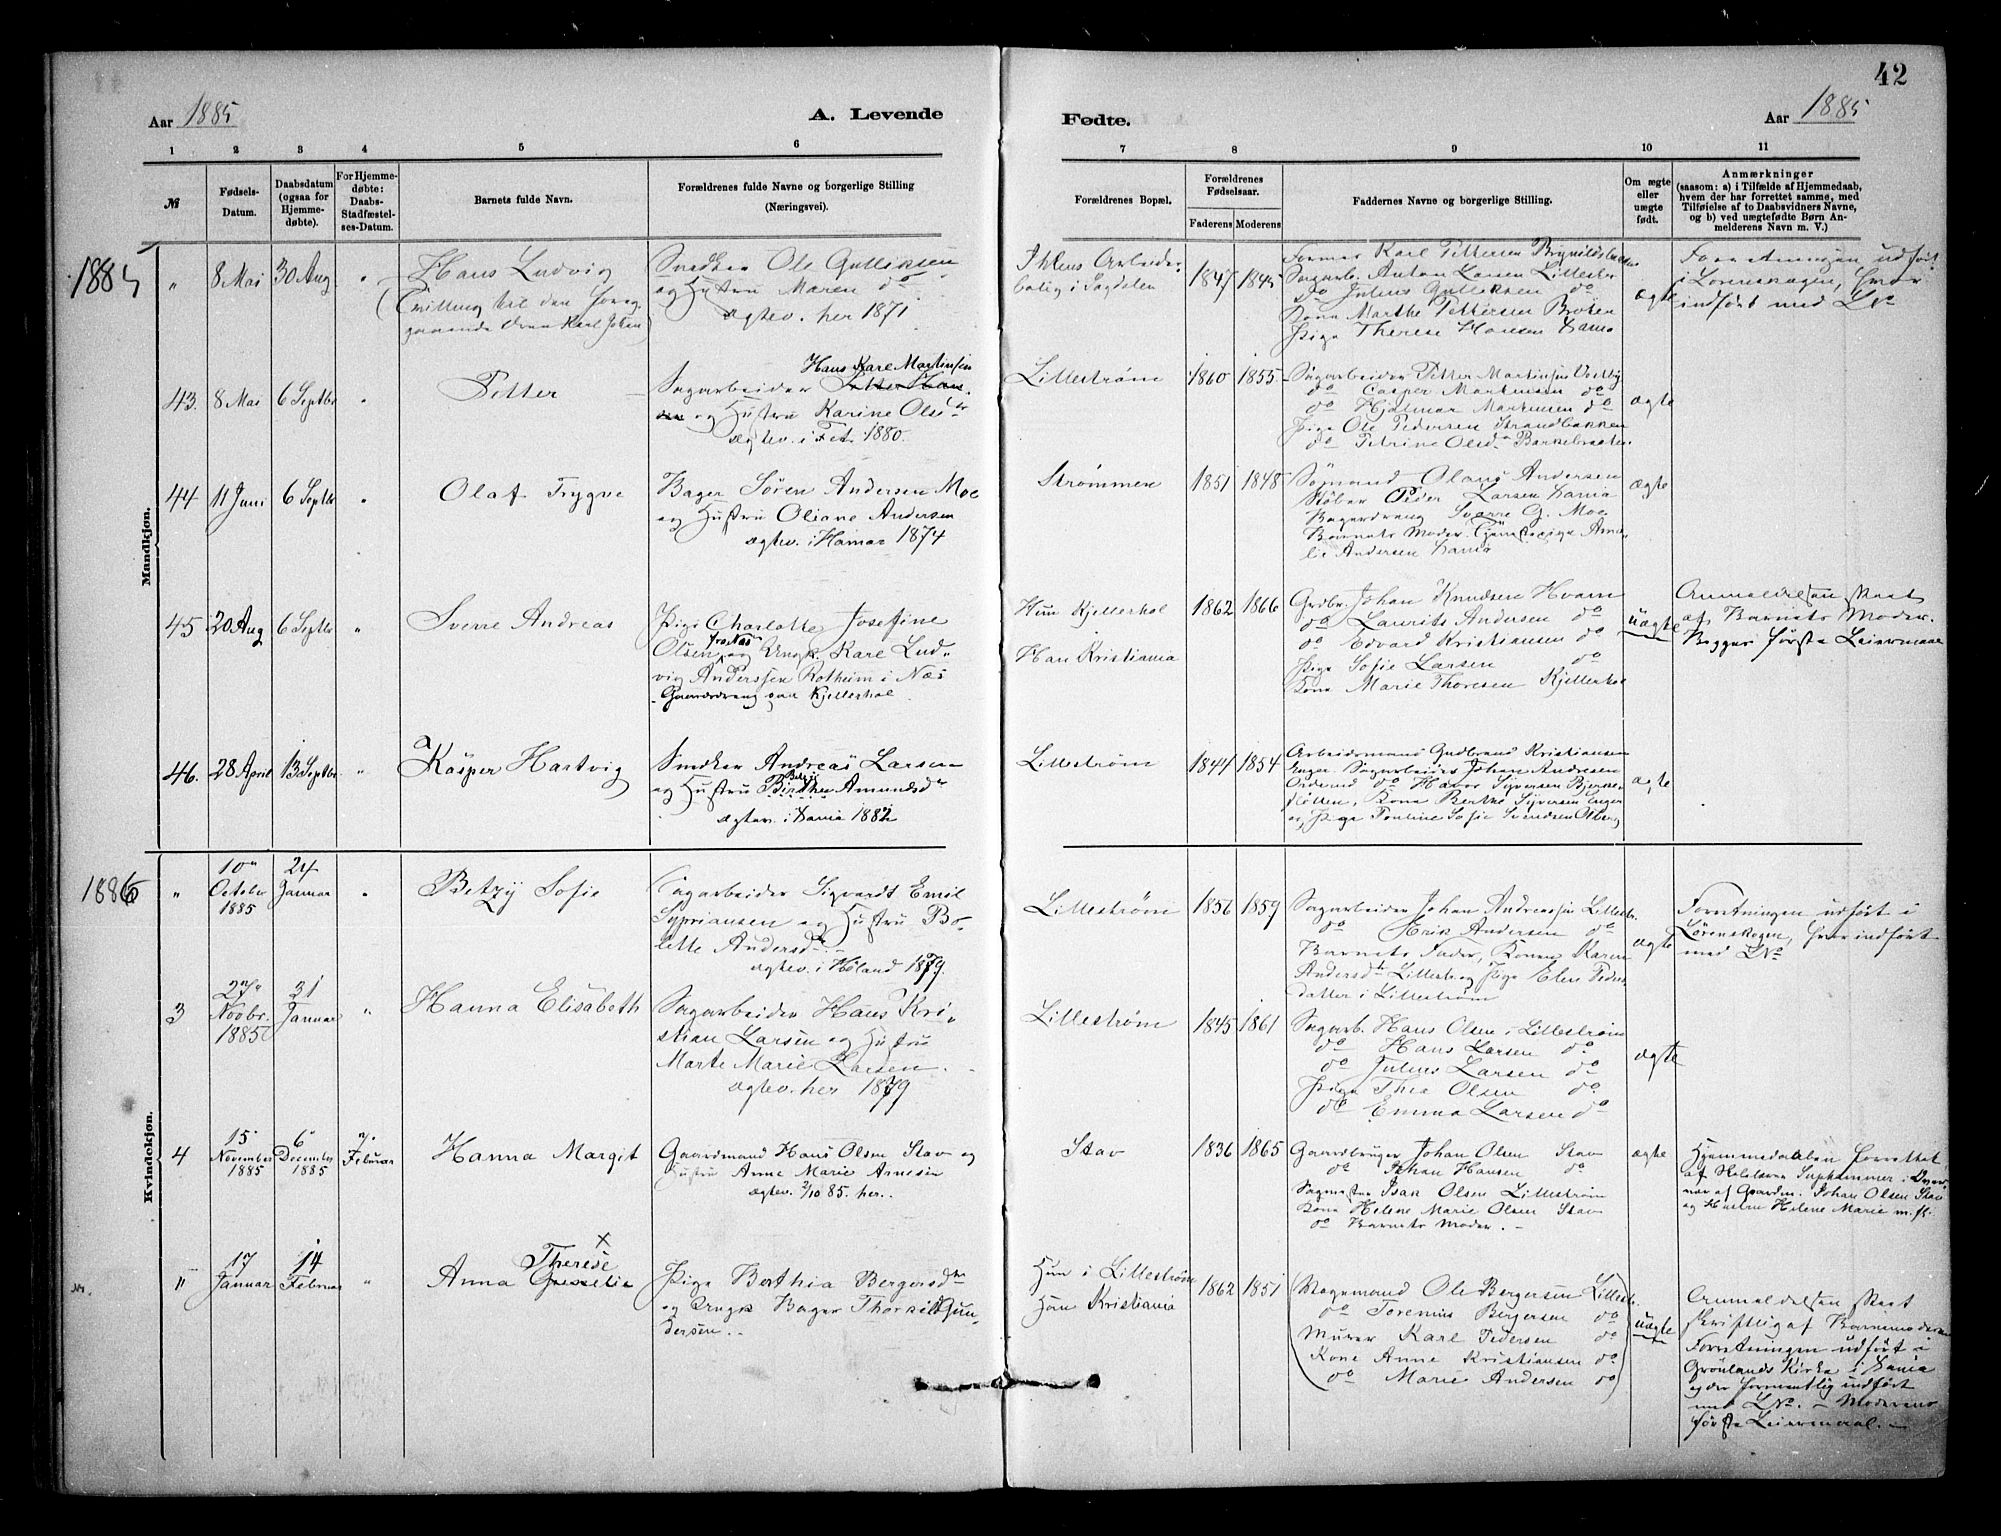 42
Aar 1885
A. Levende
Fødte.
Aar 1885
1 2 3 4 5 6 7 8 9 10 11
№
Fødsels-
Datum.
Daabsdatum
(ogsaa for
Hjemme-
døbte).
For Hjemme-
døbte:
Daabs-
Stadfæstel-
ses-Datum.
Barnets fulde Navn.
Forældrenes fulde Navne og borgerlige Stilling
(Næringsvei).
Forældrenes Bopæl.
Forældrenes
Fødselsaar.
Faderens Moderens
Faddernes Navne og borgerlige Stilling.
Om ægte
eller
uægte
født.
Anmærkninger
(saasom: a) i Tilfælde af Hjemmedaab,
hvem der har forrettet samme, med
Tilføielse af to Daabsvidners Navne,
og b) ved uægtefødte Børn An-
melderens Navn m. V.)
Mandkjøn.
1885
" 8 Mai 30 Aug. "
Hans Ludvig
(Tvilling til den foreg.
gaaende Karl Johan)
Snedker Ole Gulliksen
og Hustru Maren do
ægtev. her 1871
i Sagdalen
1847 1845
Former Karl Pettersen
Sagarb. Anton Larsen Lillestr
Do Julius Gulliksen do
Kona Marthe Pettersen Braaten
Pige Therese Hansen
ægte
Forretningen udført
i Lørenskogen, hvor
indført med L№
43. 8 Mai 6 Septbr "
Petter
Hans Karl Martinsen
Sagarbeider
og Hustru Karine Olsdtr
ægtev. i Fet 1880.
Lillestrøm
1860 1855
Sagarbeider Petter Martinsen Vestby
do Casper Martinsen do
do Hjalmar Martinsen do
Pige Ole Pedersen Strandbakken
do Petrine Olsdtr
ægte
44 11 Juni 6 Septbr "
Olaf Trygve
Bager Søren Andersen Moe
og Hustru Oliane Andersen
ægtev. i Hamar 1874
Strømmen
1851 1848
Sømand Olaus Andersen
Støber Peder Larsen
Bagerdreng Sverre G. Moe
Barnets Moder. Tjenestepige Ama-
lie Andersen
ægte
45 20 Aug 6 Septbr "
Sverre Andreas
Pige Charlotte Josefine
Olsen fra Næs og Ungk. Karl Lud-
vig Anderssen Rotheim i Næs
Gaardsdreng paa Kjellerhol
Hun Kjellerhol
Han Kristiania
1862 1866
Grdbr. Johan Knudsen Hvam
do Laurits Andersen do
do Edvard Kristiansen do
Pige Sofie Larsen do
Kona Marie Thoresen Kjellerhol
uægte
Anmeldelsen skeet
af Barnets Moder.
Begges første Leiermaal
46. 28 April 13 Septbr "
Kasper Hartvig
Smeker Andreas Larsen
og Hustru Birthe Amundsdtr
ægtev. i 1882
Lillestrøm
1844 1854
Arbeidsmand Gudbrand Kristiansen
Enger. Sagarbeider Johan Andresen
Orderud do Havor Syversen Bjerke-
fløtten, Kona Berthe Syversen Enger
og Pige Pauline Sofie Svendsen
ægte
Kvindekjøn.
1886
" 10 October 1885 24 Januar "
Betzy Sofie
Sagarbeider Sigvardt Emil
Sypriansen og Hustru Bo-
lette Andersdtr
ægtev. i Høland 1879.
Lillestrøm
1856 1859
Sagarbeider Johan Andreassen Lillestr.
do Erik Andersen do
Barnets Fader, Konen Karen
Andersdtr Lillestr og Pige Elen Peders
datter i Lillestrøm
ægte
Forretningen udført i
Lørenskogen, hvor indført
med L№
3 27 Novbr. 1885 31 Januar "
Hanna Elisabeth
Sagarbeider Hans Kri-
stian Larsen og Hustru
Marte Marie Larsen.
ægtev. her 1879
Lillestrøm
1845 1861
Sagarb. Hans Olsen i Lillestrøm
do Hans Larsen do
do Julius Larsen do
Pige Thea Olsen do
do Emma Larsen do
ægte
4 15 November 1885 6 December 1885 7 Februar
Hanna Margit
Gaardmand Hans Olsen Stav og
Hustru Anne Marie Arnesen
ægtev. 2/10 85. her.
Stav
1836 1865
Gaardbruger Johan Olsen Stav
do Johan Hansen do
Sagmester Isak Olsen Lillestrøm
Kona Helene Marie Olsen Stav
do Barnets Moder. –
ægte
Hjemmedaaben forrettet
af Skolelærer i Nær-
vær af Gaardm. Johan Olsen Stav
og Hustru Helene Marie m. fl.
" 17 Januar 14 Februar "
Therese ×
Anna
Pige Berthia Bergersdtr
og Ungk Bager Thorkild Gun-
dersen. –
Hun i Lillestrøm
Han Kristiania
1862 1851
(Vognmand Ole Bergersen Lillestr.
do Torenius Bergersen do
Murer Karl Pedersen do
Kone Anne Kristiansen do
do Marie Andersen do)
uægte
Anmeldelsen skeet
skriftlig af Barnemoderen
Forretningen udført i
Grønlands Kirke i
og der formentlig indført
med L№. – Moderens
første Leiermaal. –